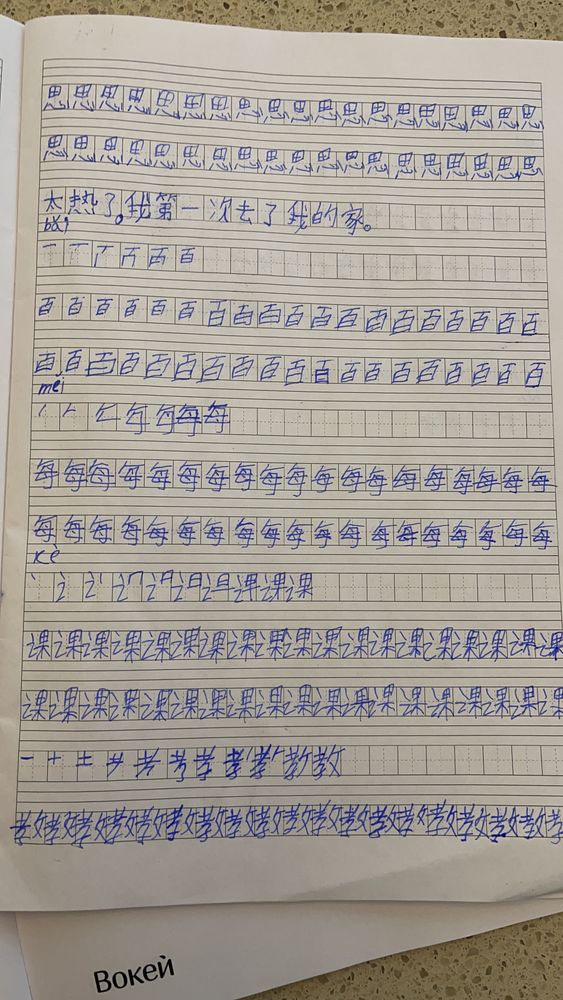 思思思思思思思思思思思思思思思思思思思
思思思思思思思思思思思思思思思思思思思
太热了。我第一次去了我的家。
bǎi
一 百
百百百百百百百百百百百百百百百百百百百
百百百百百百百百百百百百百百百百百百百
měi
每每
每每每每每每每每每每每每每每每每每每每
每每每每每每每每每每每每每每每每每每每
kè
课课
课课课课课课课课课课课课课课课课课课课
课课课课课课课课课课课课课课课课课课课
一十土耂孝教教
教教教教教教教教教教教教教教教教教教
Вокей